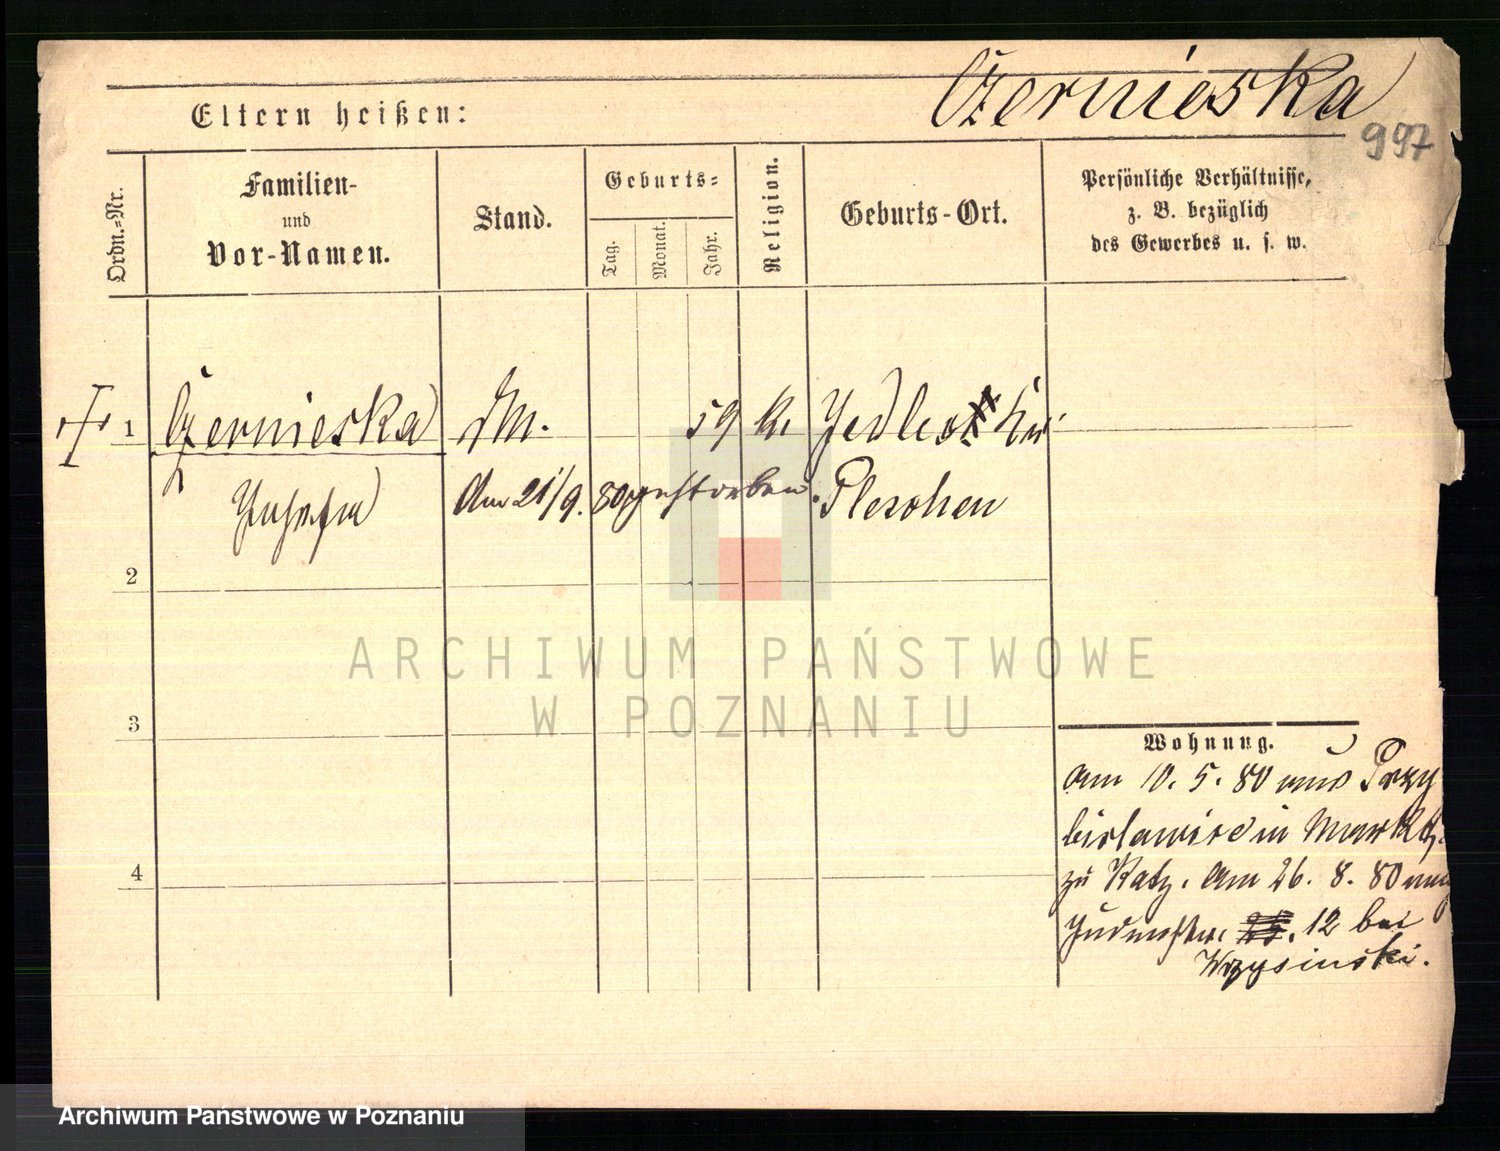 Czernieska
997
Eltern heißen:
Ordn.-Nr.
Familien-
und
Vor-Namen.
Stand.
Geburts-
Tag.
Monat.
Jahr.
Religion.
Geburts-Ort.
Persönliche Verhältnisse,
z. B. bezüglich
des Gewerbes u. s. w.
1 Czernieska DM. 59 k. Jedlec Kr.
Josefa Am 21/9. 80 gestorben. Pleschen
2
3
4
ARCHIWUM PAŃSTWOWE
W POZNANIU
Wohnung.
Am 10. 5. 80 aus Przy
bislawice in
zu Ratz. Am 26. 8. 80 nach
Judenstr. 12 bei
Wrzysinski.
Archiwum Państwowe w Poznaniu